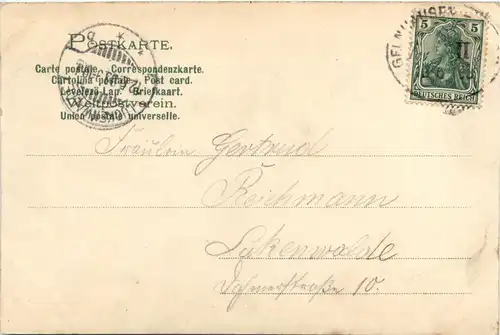 POSTKARTE.
Carte postale. Correspondenzkarte.
Cartolina postale. Post card.
Levelező-Lap. Briefkaart.
Weltpostverein.
Union postale universelle.
GELNHAUSEN
5 5
DEUTSCHES REICH
Fräulein Gertrud
Reichmann
Lukenwalde
10.